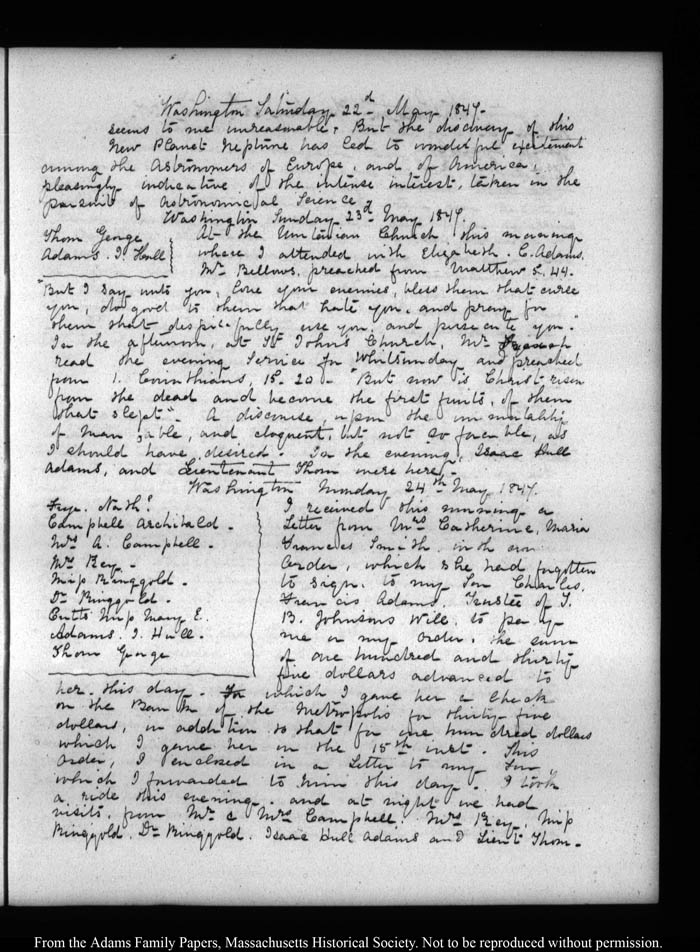 Washington Saturday 22d May 1847.
seems to me unreasonable. But the discovery of this
New Planet Neptune has led to wonderful excitement
among the Astronomers of Europe, and of America,
pleasingly indicative of the intense interest, taken in the
pursuit of Astronomical Science.
Washington Sunday 23d May 1847.
Thom George
Adams. I. Hull
At the Unitarian Church this morning
where I attended with Elizabeth. C. Adams.
Mr. Bellows, preached from Matthew 5. 44.
"But I say unto you, love your enemies, bless them that curse
you, do good to them that hate you, and pray for
them that despitefully use you, and persecute you."
In the afternoon, at St John's Church, Mr.
read the evening Service for Whitsunday and preached
from 1. Corinthians, 15. 20. "But now is Christ risen
from the dead and become the first fruits, of them
that slept". A discourse, upon the immortality
of Man, able, and eloquent, but not so forceable, as
I should have desired. In the evening, Isaac Hull
Adams, and Lieutenant Thom were here.
Washington Monday 24th May 1847.
Frye. Nathl.
Campbell Archibald.
Mrs A. Campbell.
Mrs Key.
Miss Ringgold.
Dr. Ringgold.
Cutts Miss Mary E.
Adams. I. Hull.
Thom George
I received this morning a
Letter from Mrs Catherine, Maria
Frances Smith, with an
Order, which she had forgotten
to sign, to my Son Charles.
Francis Adams, Trustee of T.
B. Johnsons Will, to pay
me or my order, the sum
of one hundred and thirty
five dollars advanced to
her. this day. For which I gave her a Check
on the Bank of the Metropolis for thirty five
dollars, in addition to that for one hundred dollars
which I gave her on the 15th inst. This
Order, I enclosed in a Letter to my Son,
which I forwarded to him this day. I took
a ride this evening, and at night we had
visits, from Mr. & Mrs Campbell, Mrs Key, Miss
Ringgold, Dr Ringgold. Isaac Hull Adams and Lieut Thom.
From the Adams Family Papers, Massachusetts Historical Society. Not to be reproduced without permission.